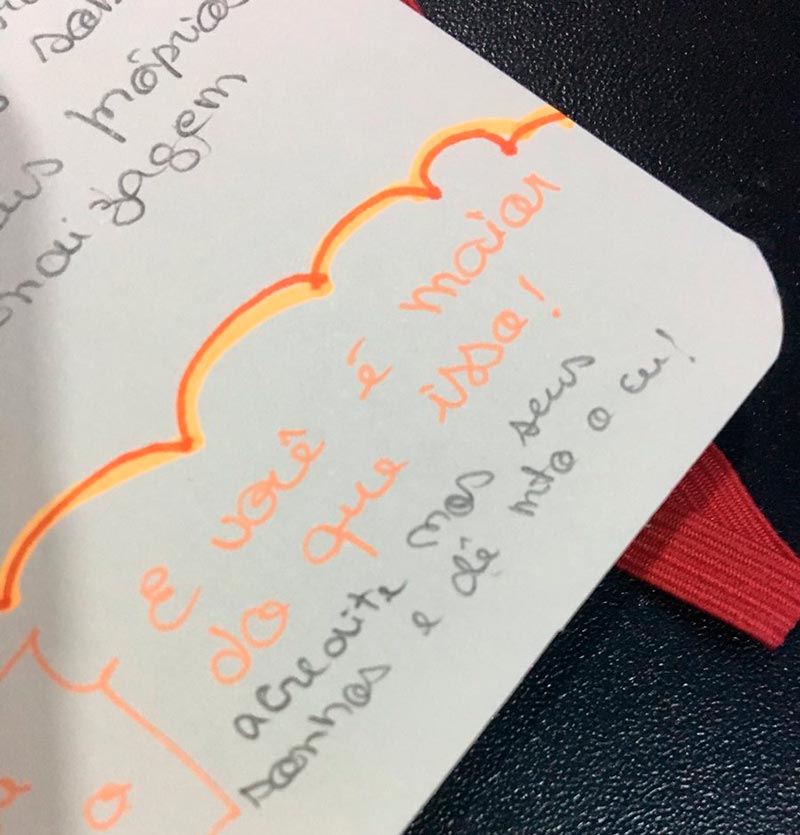 próprios
E você é maior
do que isso!
acredite nos seus
sonhos e dê mto o cu!